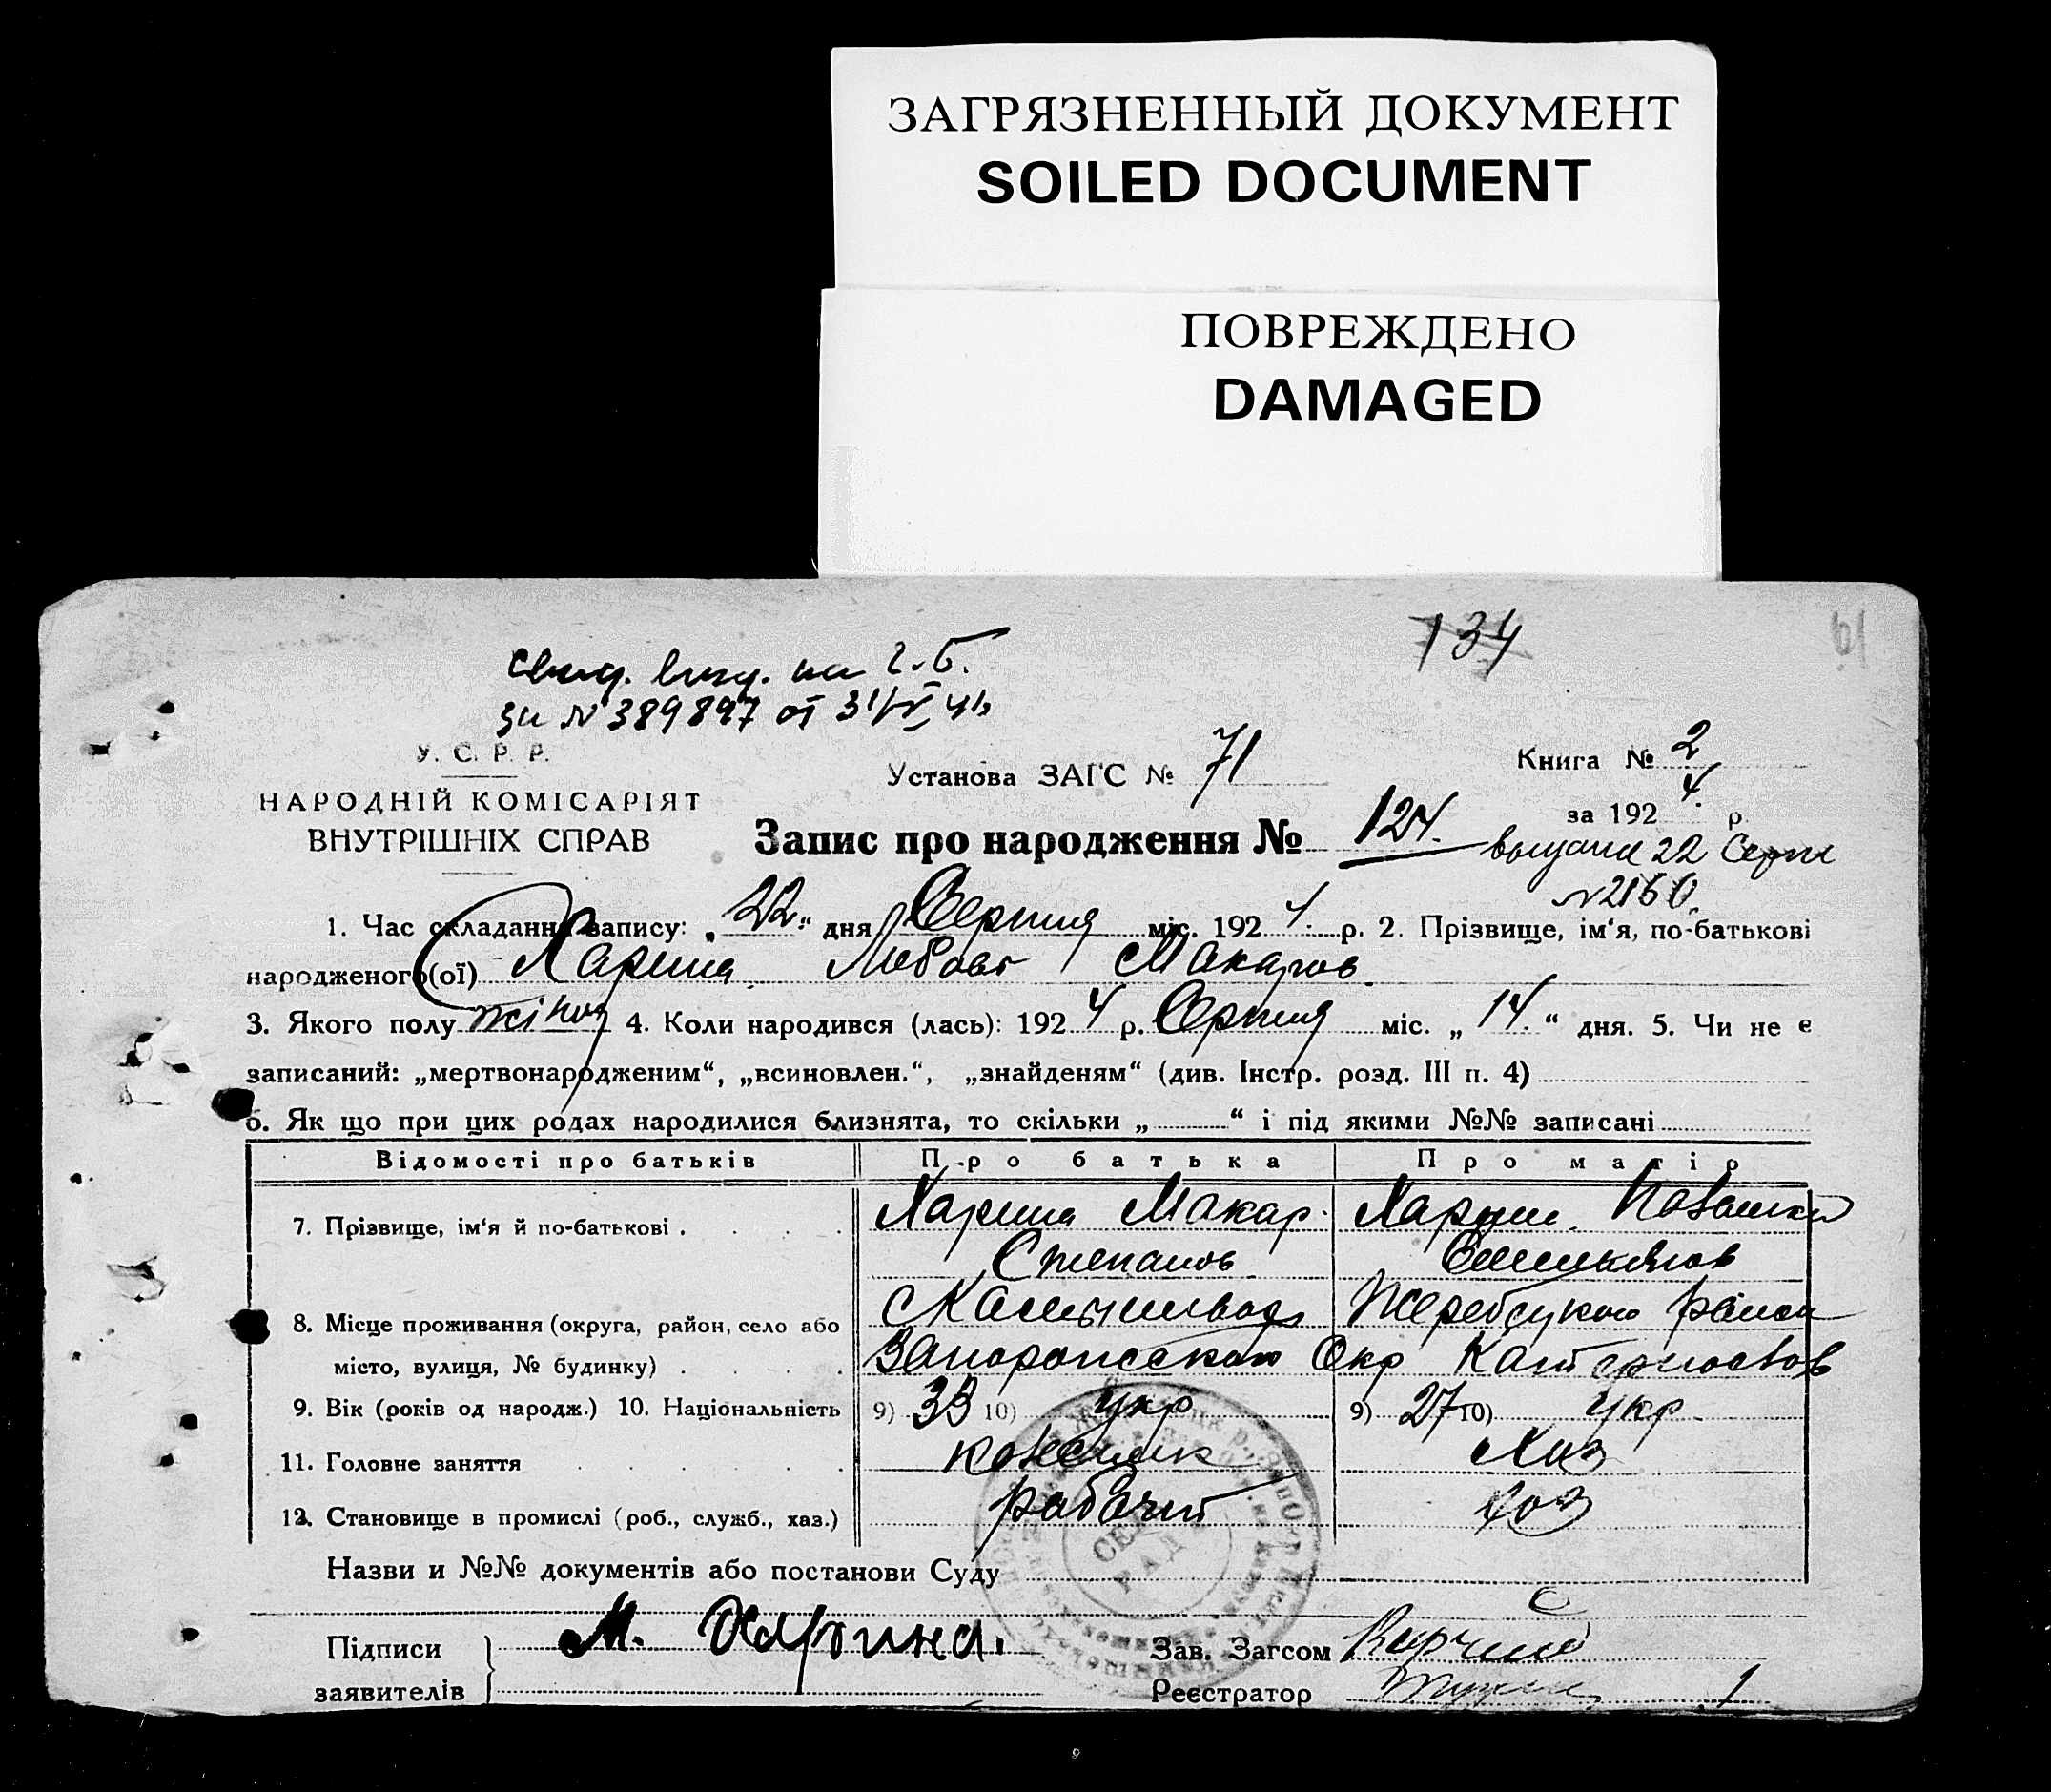 ЗАГРЯЗНЕННЫЙ ДОКУМЕНТ
SOILED DOCUMENT
ПОВРЕЖДЕНО
DAMAGED
134
61
свид. выд. на г. б.
за № 389897 от 31/V 41
У. С. Р. Р.
НАРОДНІЙ КОМІСАРІЯТ
ВНУТРІШНІХ СПРАВ
Установа ЗАГС № 71
Книга № 2
за 192 4 р.
Запис про народження № 124.
22 Серп
№2160
1. Час складання запису: „22“ дня Серпня міс. 192 4 р. 2. Прізвище, ім‘я, по-батькові
народженого(ої) Харина Любовь Макаров
3. Якого полу жіноч 4. Коли народився (лась): 192 4 р. Серпня міс. „14.“ дня. 5. Чи не є
записаний: „мертвонародженим“, „всиновлен.“, „знайденям“ (див. Інстр. розд. III п. 4)
6. Як що при цих родах народилися близнята, то скільки „ “ і під якими №№ записані
Відомості про батьків Про батька Про матір
7. Прізвище, ім‘я й по-батькові . Харина Макар
Степанов
8. Місце проживання (округа, район, село або
місто, вулиця, № будинку) . Запорожского Окр
9. Вік (років од народж.) 10. Національність 9) 33 10) укр 9) 27 10) укр
11. Головне заняття
12. Становище в промислі (роб., служб., хаз.) рабочий хоз
Назви и №№ документів або постанови Суду
Підписи
заявителів
М. Харина.
Зав. Загсом
Реєстратор
1